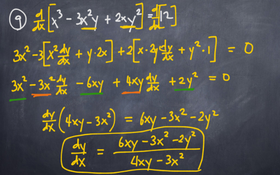 ⑨ d/dx [x³ - 3x²y + 2xy²] = d/dx [12]
3x² - 3[x² dy/dx + y·2x] + 2[x·2y dy/dx + y²·1] = 0
3x² - 3x² dy/dx - 6xy + 4xy dy/dx + 2y² = 0
dy/dx (4xy - 3x²) = 6xy - 3x² - 2y²
dy/dx = (6xy - 3x² - 2y²)/(4xy - 3x²)